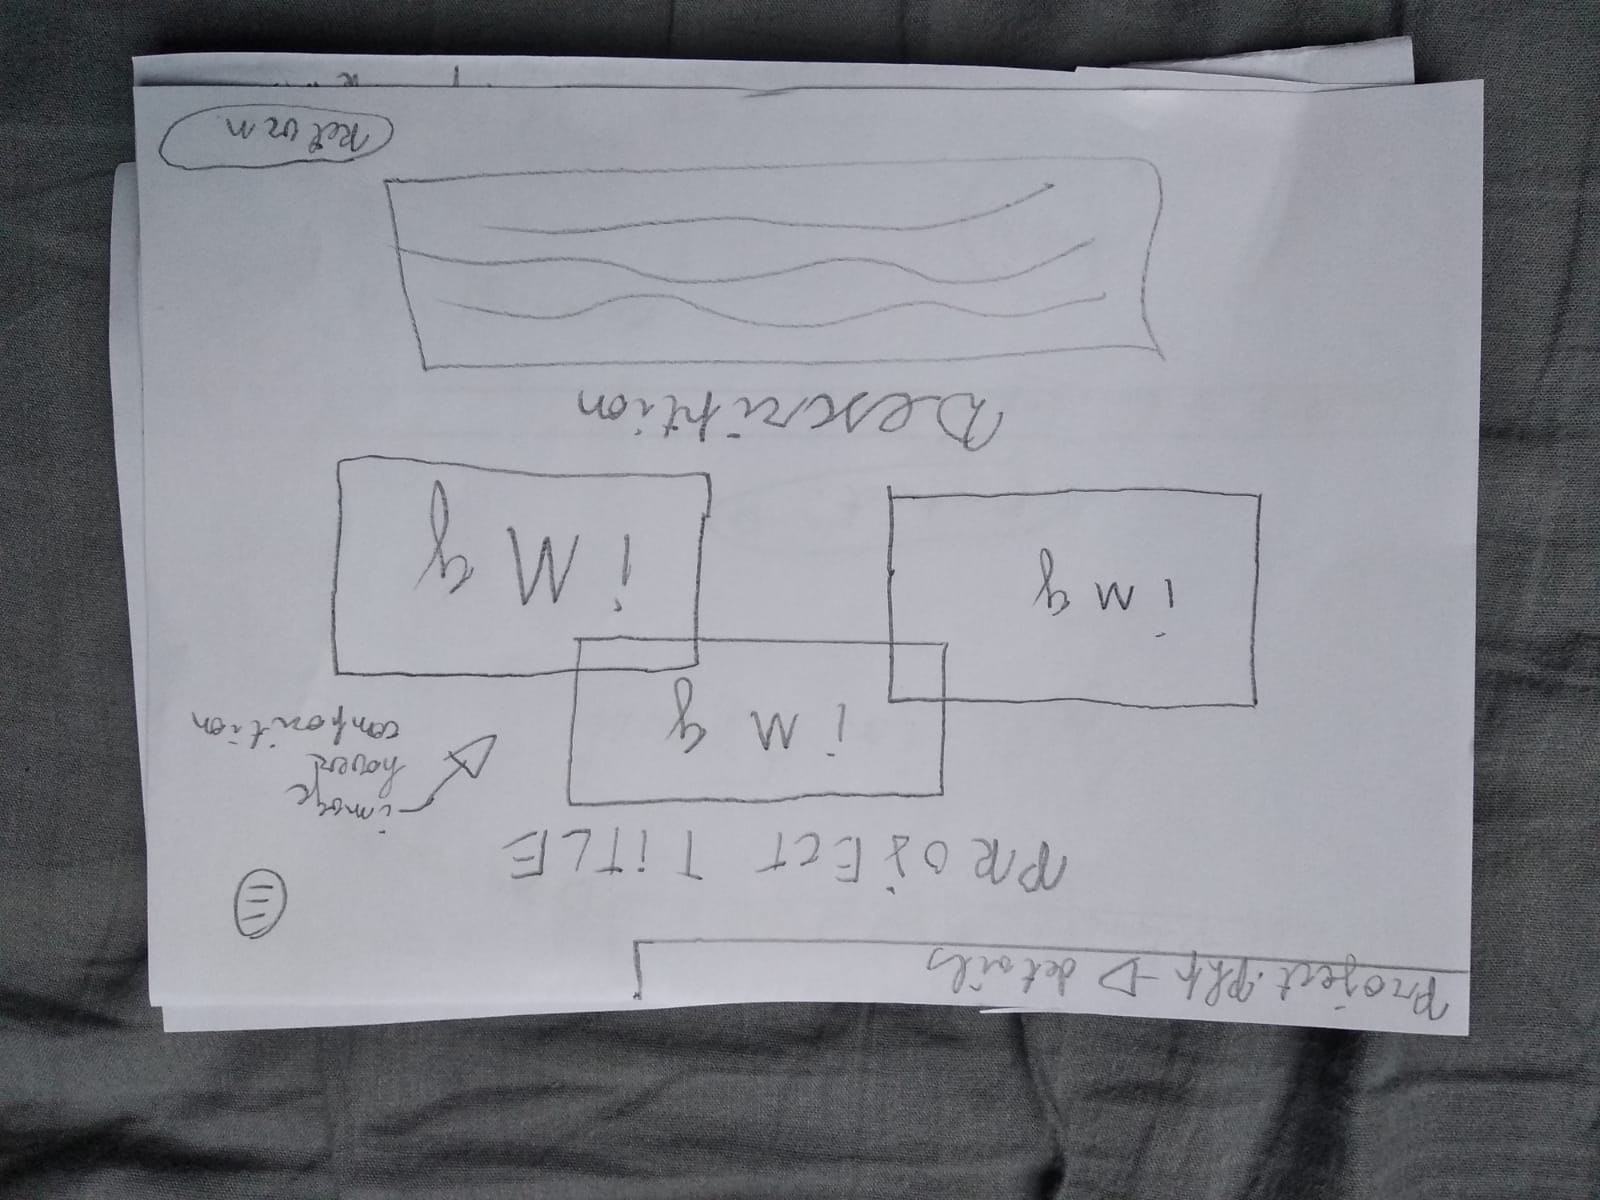 Project.php → details
PROJECT TITLE
image
hover
composition
img
img
iMg
Description
Return